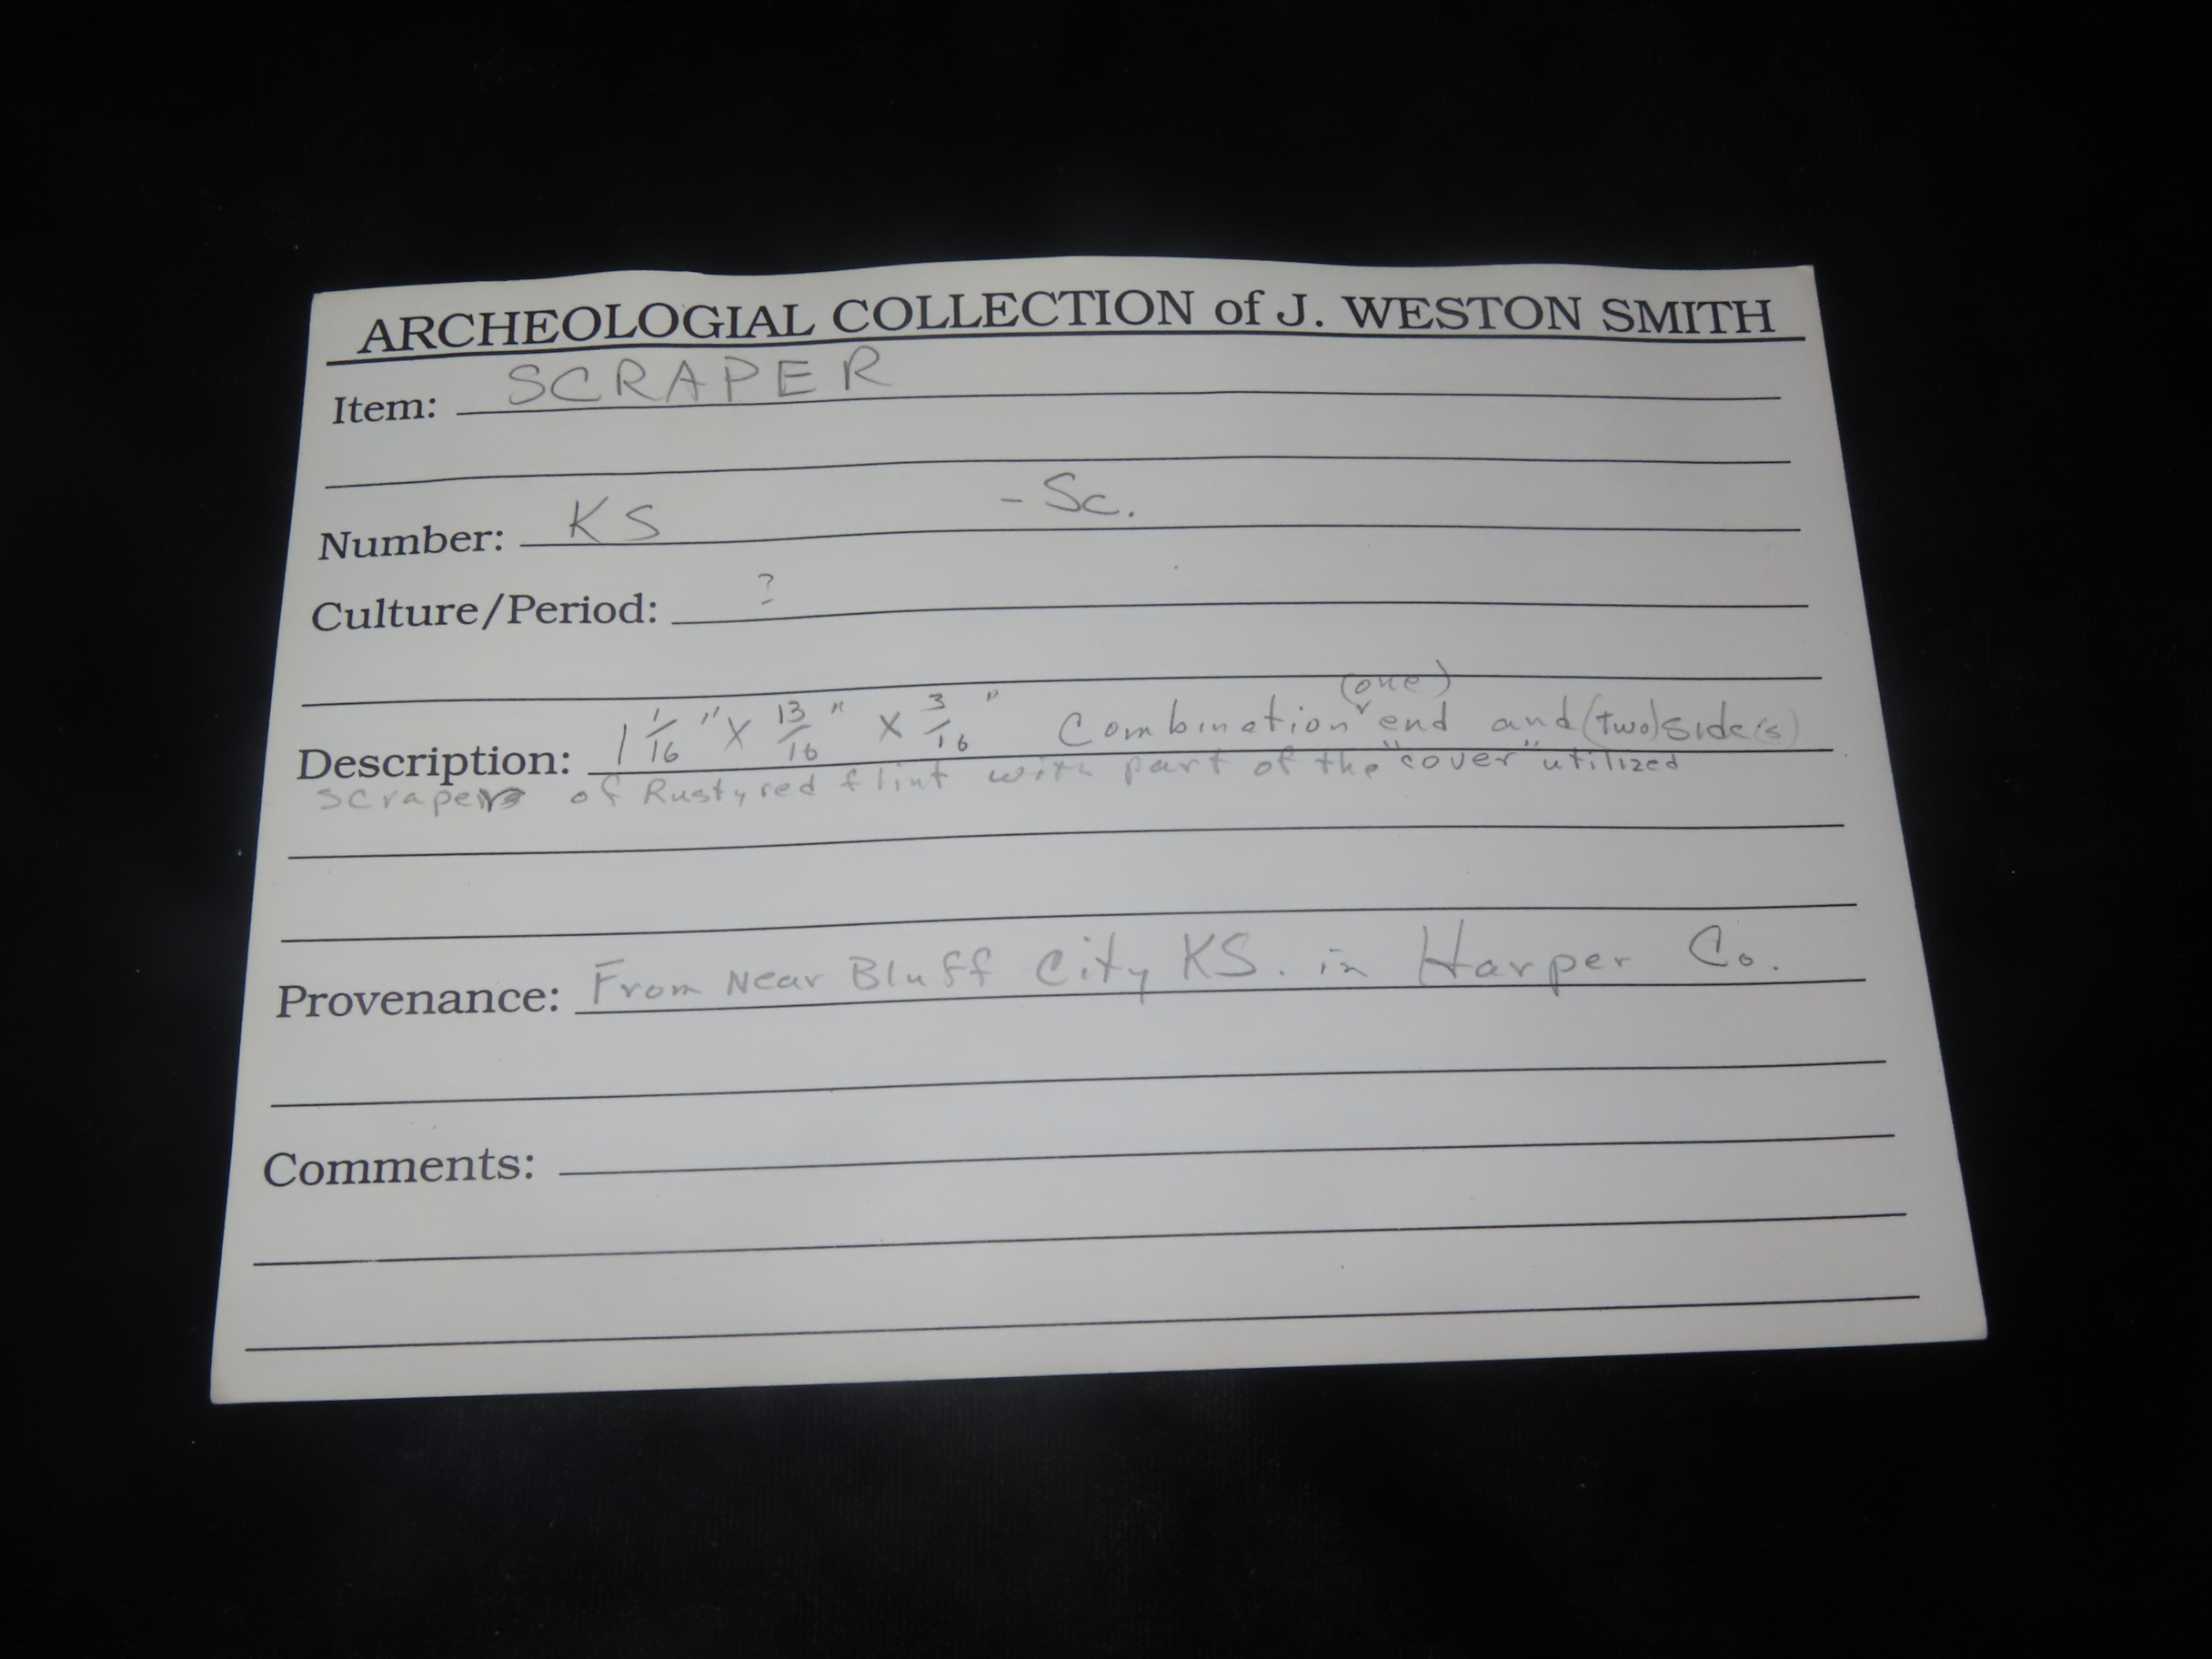 ARCHEOLOGIAL COLLECTION of J. WESTON SMITH
Item: SCRAPER
Number: KS - Sc.
Culture/Period: ?
(one)
Description: 1 1/16" X 13/16" X 3/16" Combination end and (two) side(s)
scraper of Rusty red flint with part of the "cover" utilized
Provenance: From Near Bluff City KS. in Harper Co.
Comments: